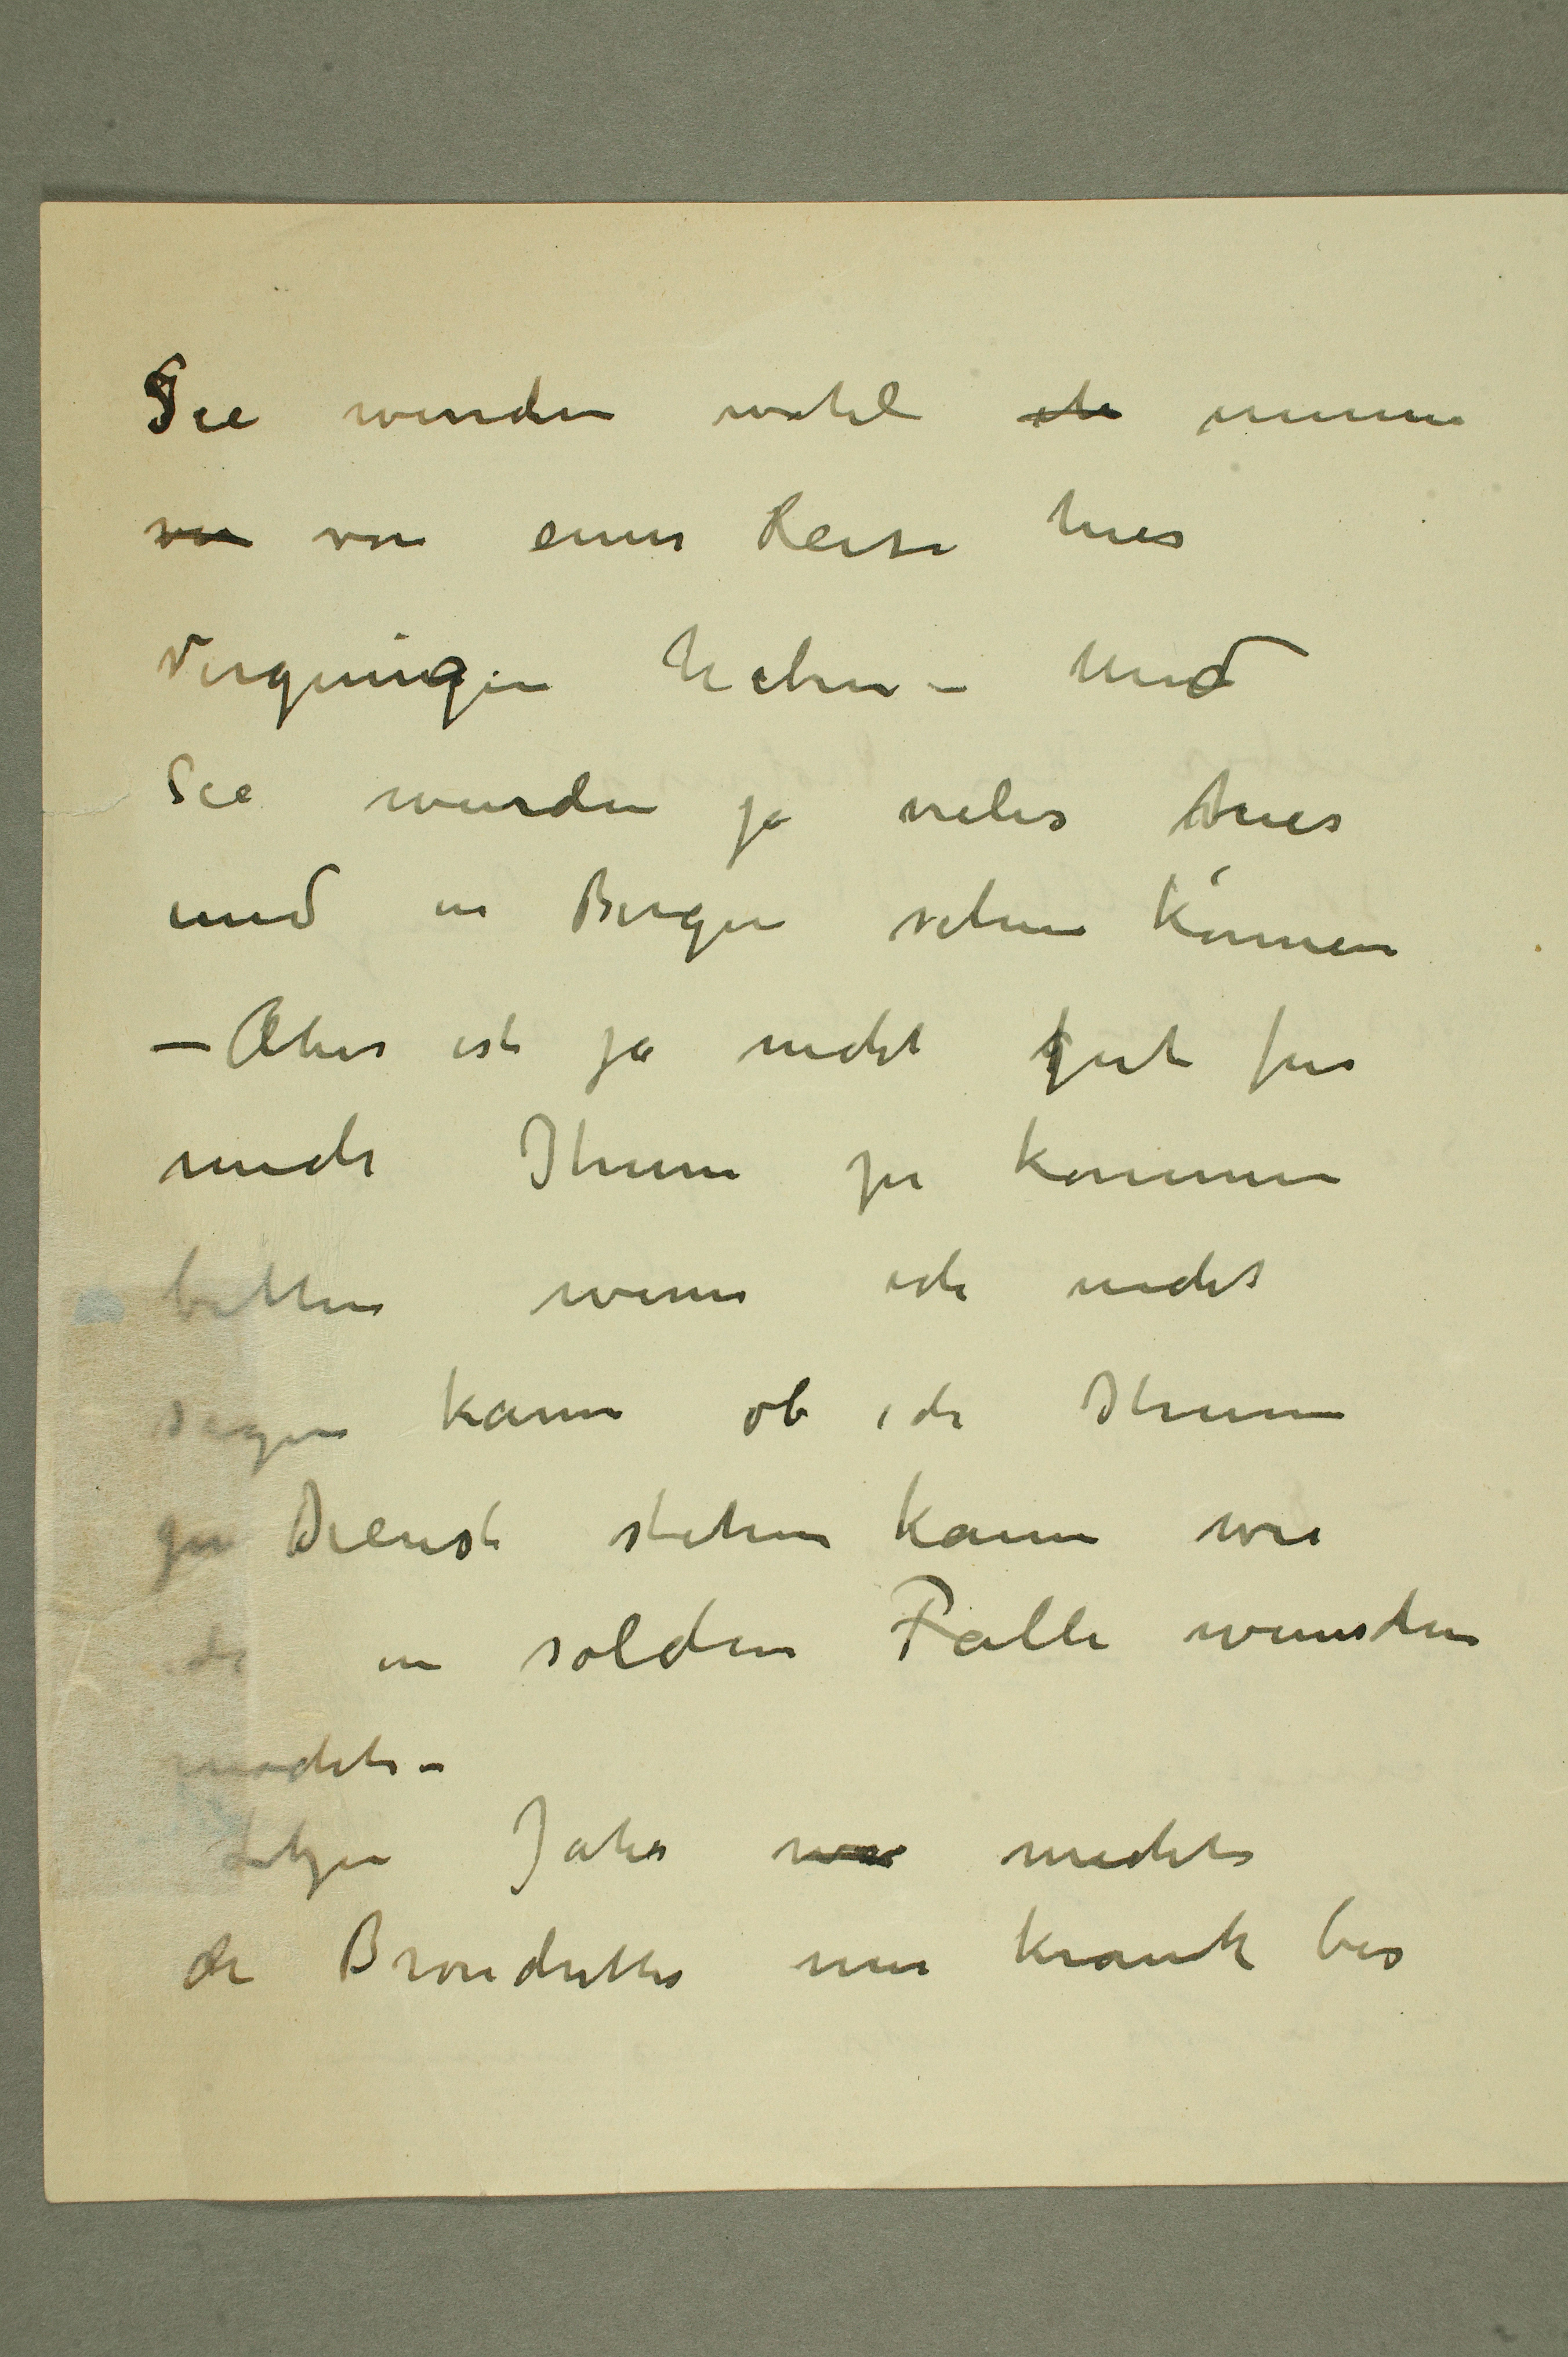 Sie wurden wohl ~~ih~~ immer
~~von~~ von einer Reise hier
Vergnügen haben – Und
Sie wurden ja vieles hier
und in Bergen sehen können
– Aber ist ja nicht gut für
mich Ihnen zu kommen
bitten wenn ich nicht
sagen kann ob ich Ihnen
zu Dienst stehen kann wie
ich in solchen Falle wunschen
möchte –
Letzen Jahr ~~war~~ machte
die Bronchittis mir krank bis